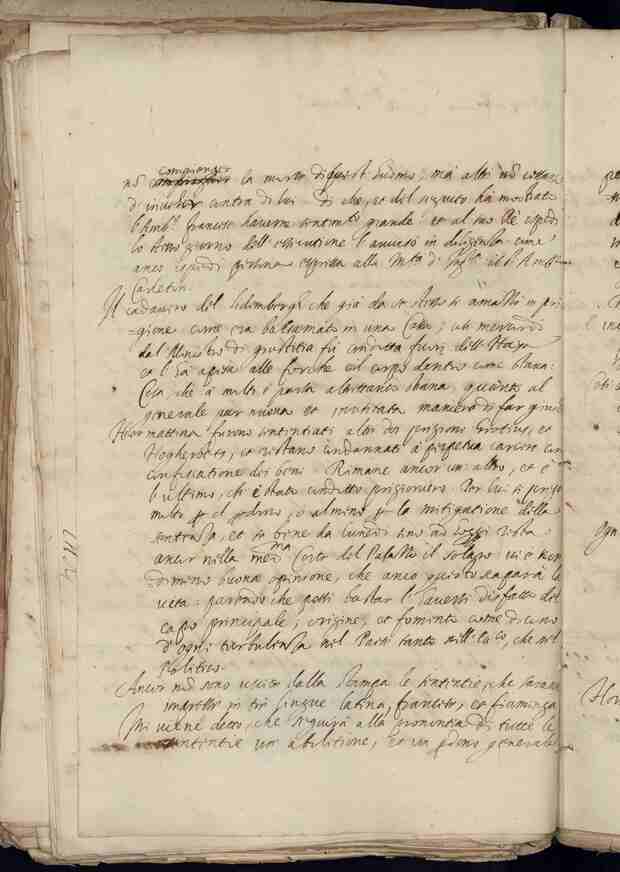 compianger
nõ la morte di quest' huomo; mà altri nõ cessano
d'inuehir contra di lui. Di che, et del seguito hà mostrato
l'Amb.r francese hauerne sentim.to grande: et al suo Rè espedì
lo stesso giorno dell'essecutione l'auuiso in diligenza come'
anco espedì persona espressa alla M.tà d'Ing.ra il S.r Amb.r
Carleton.
Il cadauero del Ledembergh che già da se stesso si amazzò in pri=
=gione come era balsamato in una Cassa; fù mercordì
dal Ministro di giustitia fù condotta fuori dell'Haya
et là apesa alle forche col corpo dentro come staua.
Cosa che à molti è parsa alquanto strana, quanto al
generale per nuoua et inusitata maniera di far giust.a
Hier mattina furono sententiati altri doi prigioni Grotius, et
Hogherbets, et restano condannati à perpetua carcere con
confiscatione dei beni. Rimane ancor un altro, et è
l'ultimo, ch'è stato condotto prigioniero. Per lui si prega
molto p el p.dono, o almeno p la mitigatione della
sentenza, et se bene da lunedì sino ad hoggi resta
ancor nella med.ma Corte del Palazzo il solaro: ui è non
dimeno buona opinione, che anco questo scaparà la
uita: parendo che possi bastar l'hauersi disfatto del
capo principale, origine, et fomento come dicono
d'ogni turbulenza nel Paese tanto nell'Ecc.o, che nel
Politico.
Ancor nõ sono uscite dalla stampa le sententie, che saranno
impresse in tre lingue latina, francese, et fiaminga
Mi uiene detto, che seguirà alla prononcia di tutte le
sententie un abolitione, et un p.dono generale